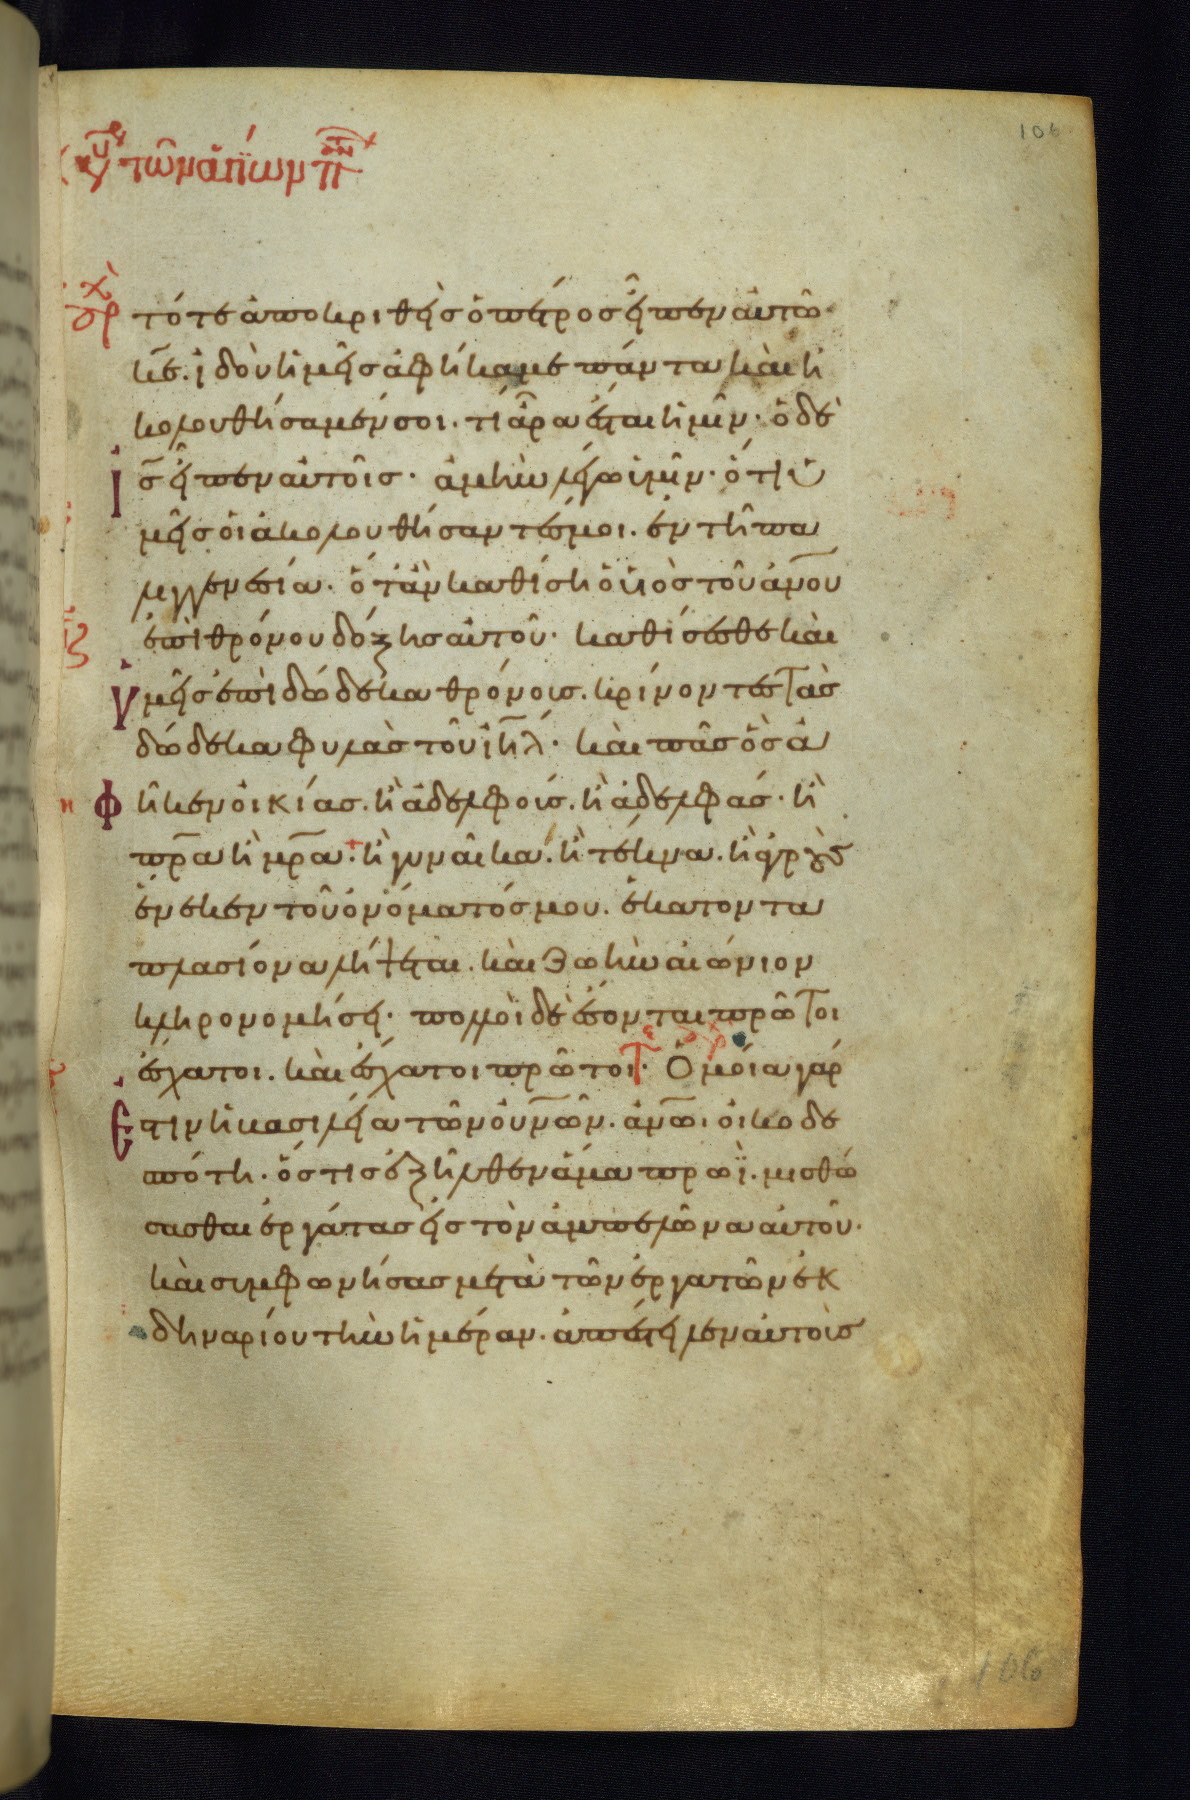 106
τῶν ἁγίων π
τότε ἀποκριθεὶς ὁ πέτρος εἶπεν αὐτῶ·
κε̄. ἰδοὺ ἡμεῖς ἀφήκαμεν πάντα καὶ ἠ
κολουθήσαμέν σοι. τί ἄρα ἔσται ἡμῖν· ὁ δὲ
ῑς εἶπεν αὐτοῖς· ἀμὴν λέγω ὑμῖν· ὅτι ὑ
μεῖς οἱ ἀκολουθήσαντές μοι. ἐν τῆ πα
λιγγενεσία. ὅταν καθίση ὁ ὑιὸς τοῦ ἀν̄ου
ἐπὶ θρόνου δόξης αὐτοῦ· καθίσεσθε καὶ
ὑμεῖς ἐπὶ δώδεκα θρόνοις. κρίνοντες τὰς
δώδεκα φυλὰς τοῦ ιη̄λ· καὶ πᾶς ὃς ἀ
φῆκεν οἰκίας. ἢ ἀδελφούς. ἢ ἀδελφάς· ἢ
πρ̄α ἢ μρ̄α. ἢ γυναῖκα. ἢ τέκνα. ἢ ἀγροὺς
ἕνεκεν τοῦ ὀνόματός μου. ἑκατοντα
πλασίονα λήψεται. καὶ ζωὴν αἰώνιον
κληρονομήσει· πολλοὶ δὲ ἔσονται πρῶτοι
ἔσχατοι. καὶ ἔσχατοι πρῶτοι· Ὁμοία γάρ
ἐστιν ἡ βασιλεία τῶν οὐν̄ῶν. ἀν̄ω. οἰκοδε
σπότη. ὅστις ἐξῆλθεν ἅμα πρωῒ. μισθώ
σασθαι ἐργάτας εἰς τὸν ἀμπελῶνα αὐτοῦ·
καὶ συμφωνήσας μετὰ τῶν ἐργατῶν ἐκ
δηναρίου τὴν ἡμέραν. ἀπέστειλεν αὐτοὺς
106